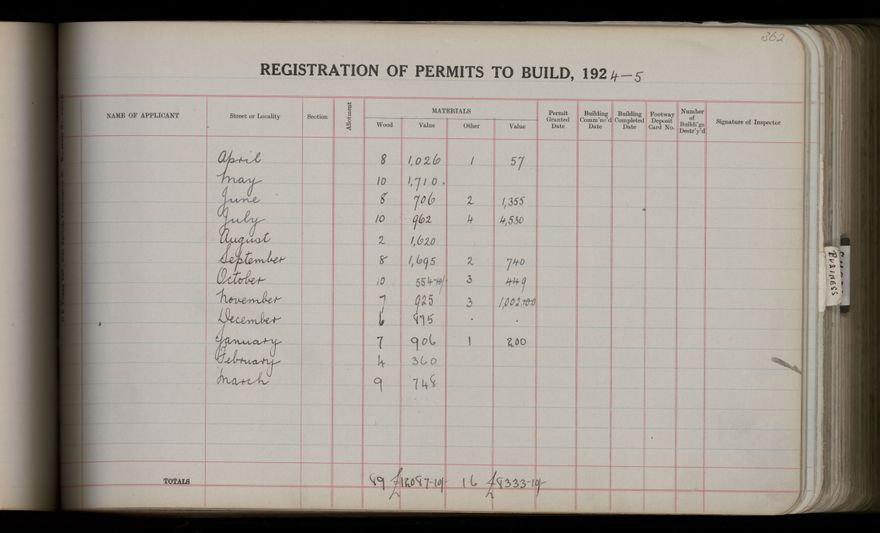 362
REGISTRATION OF PERMITS TO BUILD, 1924-5
NAME OF APPLICANT Street or Locality Section Allotment MATERIALS Wood Value Other Value Permit Granted Date Building Comm'nc'd Date Building Completed Date Footway Deposit Card No. Number of Build'gs Destr'y'd Signature of Inspector
April 8 1,026 1 57
May 10 1,710.
June 8 706 2 1,355
July 10 962 4 4,530
August 2 1,620
September 8 1,695 2 740
October 10 554-10/ 3 449
November 7 925 3 1,002-10-0
December 6 875 . .
January 7 906 1 200
February 4 360
March 9 748
TOTALS 89 £12087-10/- 16 £8333-10/-
BUSINESS